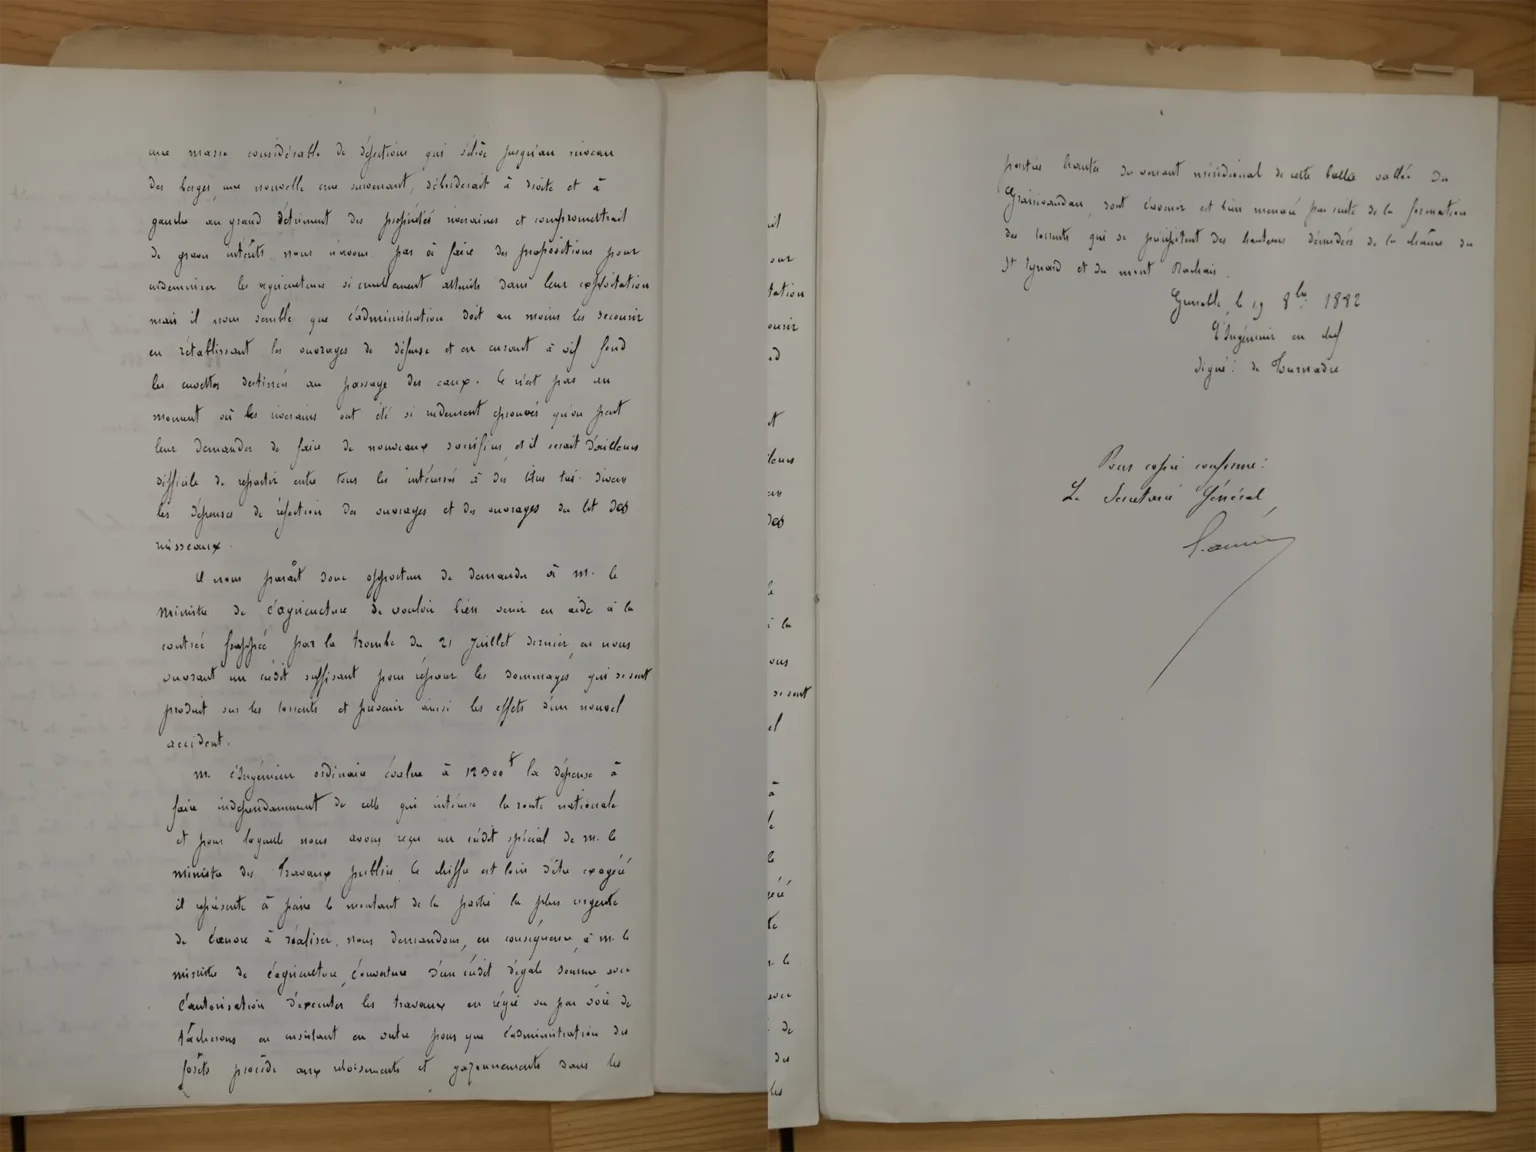 une masse considérable de déjections qui s'élève jusqu'au niveau
des berges, une nouvelle crue survenant, déborderait à droite et à
gauche au grand détriment des propriétés riveraines et compromettrait
de graves intérêts. nous n'avons pas à faire des propositions pour
indemniser les agriculteurs si cruellement atteints dans leur exploitation
mais il nous semble que l'administration doit au moins les secourir
en rétablissant les ouvrages de défense et en curant à vif fond
les cuvettes destinées au passage des eaux. Ce n'est pas au
moment où les riverains ont été si rudement éprouvés qu'on peut
leur demander de faire de nouveaux sacrifices, et il serait d'ailleurs
difficile de répartir entre tous les intéressés à des titres très divers
les dépenses de réfection des ouvrages et des ouvrages du lit des
ruisseaux.
Il nous paraît donc opportun de demander à M. le
ministre de l'agriculture de vouloir bien venir en aide à la
contrée frappée par la trombe du 21 Juillet dernier, en nous
ouvrant un crédit suffisant pour réparer les dommages qui se sont
produit sur les torrents et prévenir ainsi les effets d'un nouvel
accident.
M. l'Ingénieur ordinaire évalue à 12300f la dépense à
faire indépendamment de celle qui intéresse la route nationale
et pour laquelle nous avons reçu un crédit spécial de M. le
ministre des Travaux publics. Ce chiffre est loin d'être exagéré
il représente à peine le montant de la partie la plus urgente
de l'œuvre à réaliser. nous demandons, en conséquence, à M. le
ministre de l'agriculture, l'ouverture d'un crédit d'égale somme avec
l'autorisation d'exécuter les travaux en régie ou par voie de
tâcherons en insistant en outre pour que l'administration des
forêts procède aux reboisements et gazonnements dans les
parties hautes du versant méridional de cette belle vallée du
Graisivaudan, dont l'avenir est bien menacé par suite de la formation
des torrents qui se précipitent des hauteurs dénudées de la chaîne du
St Eynard et du mont Rachais.
Grenoble, le 19 8bre 1882
L'Ingénieur en chef
signé : de Tournadre
Pour copie conforme :
Le Secrétaire Général,